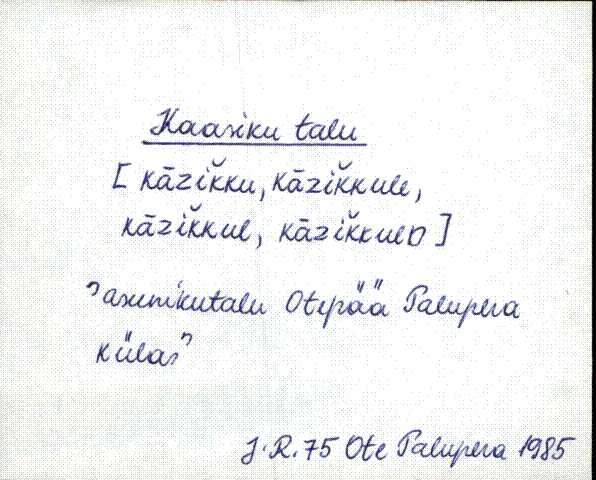 Kaasiku talu
[kāzik̆ku, kāzik̆kule,
kāzik̆kul, kāzik̆kulᴅ]
"asunikutalu Otepää Palupera
külas"
J.R. 75 Ote Palupera 1985